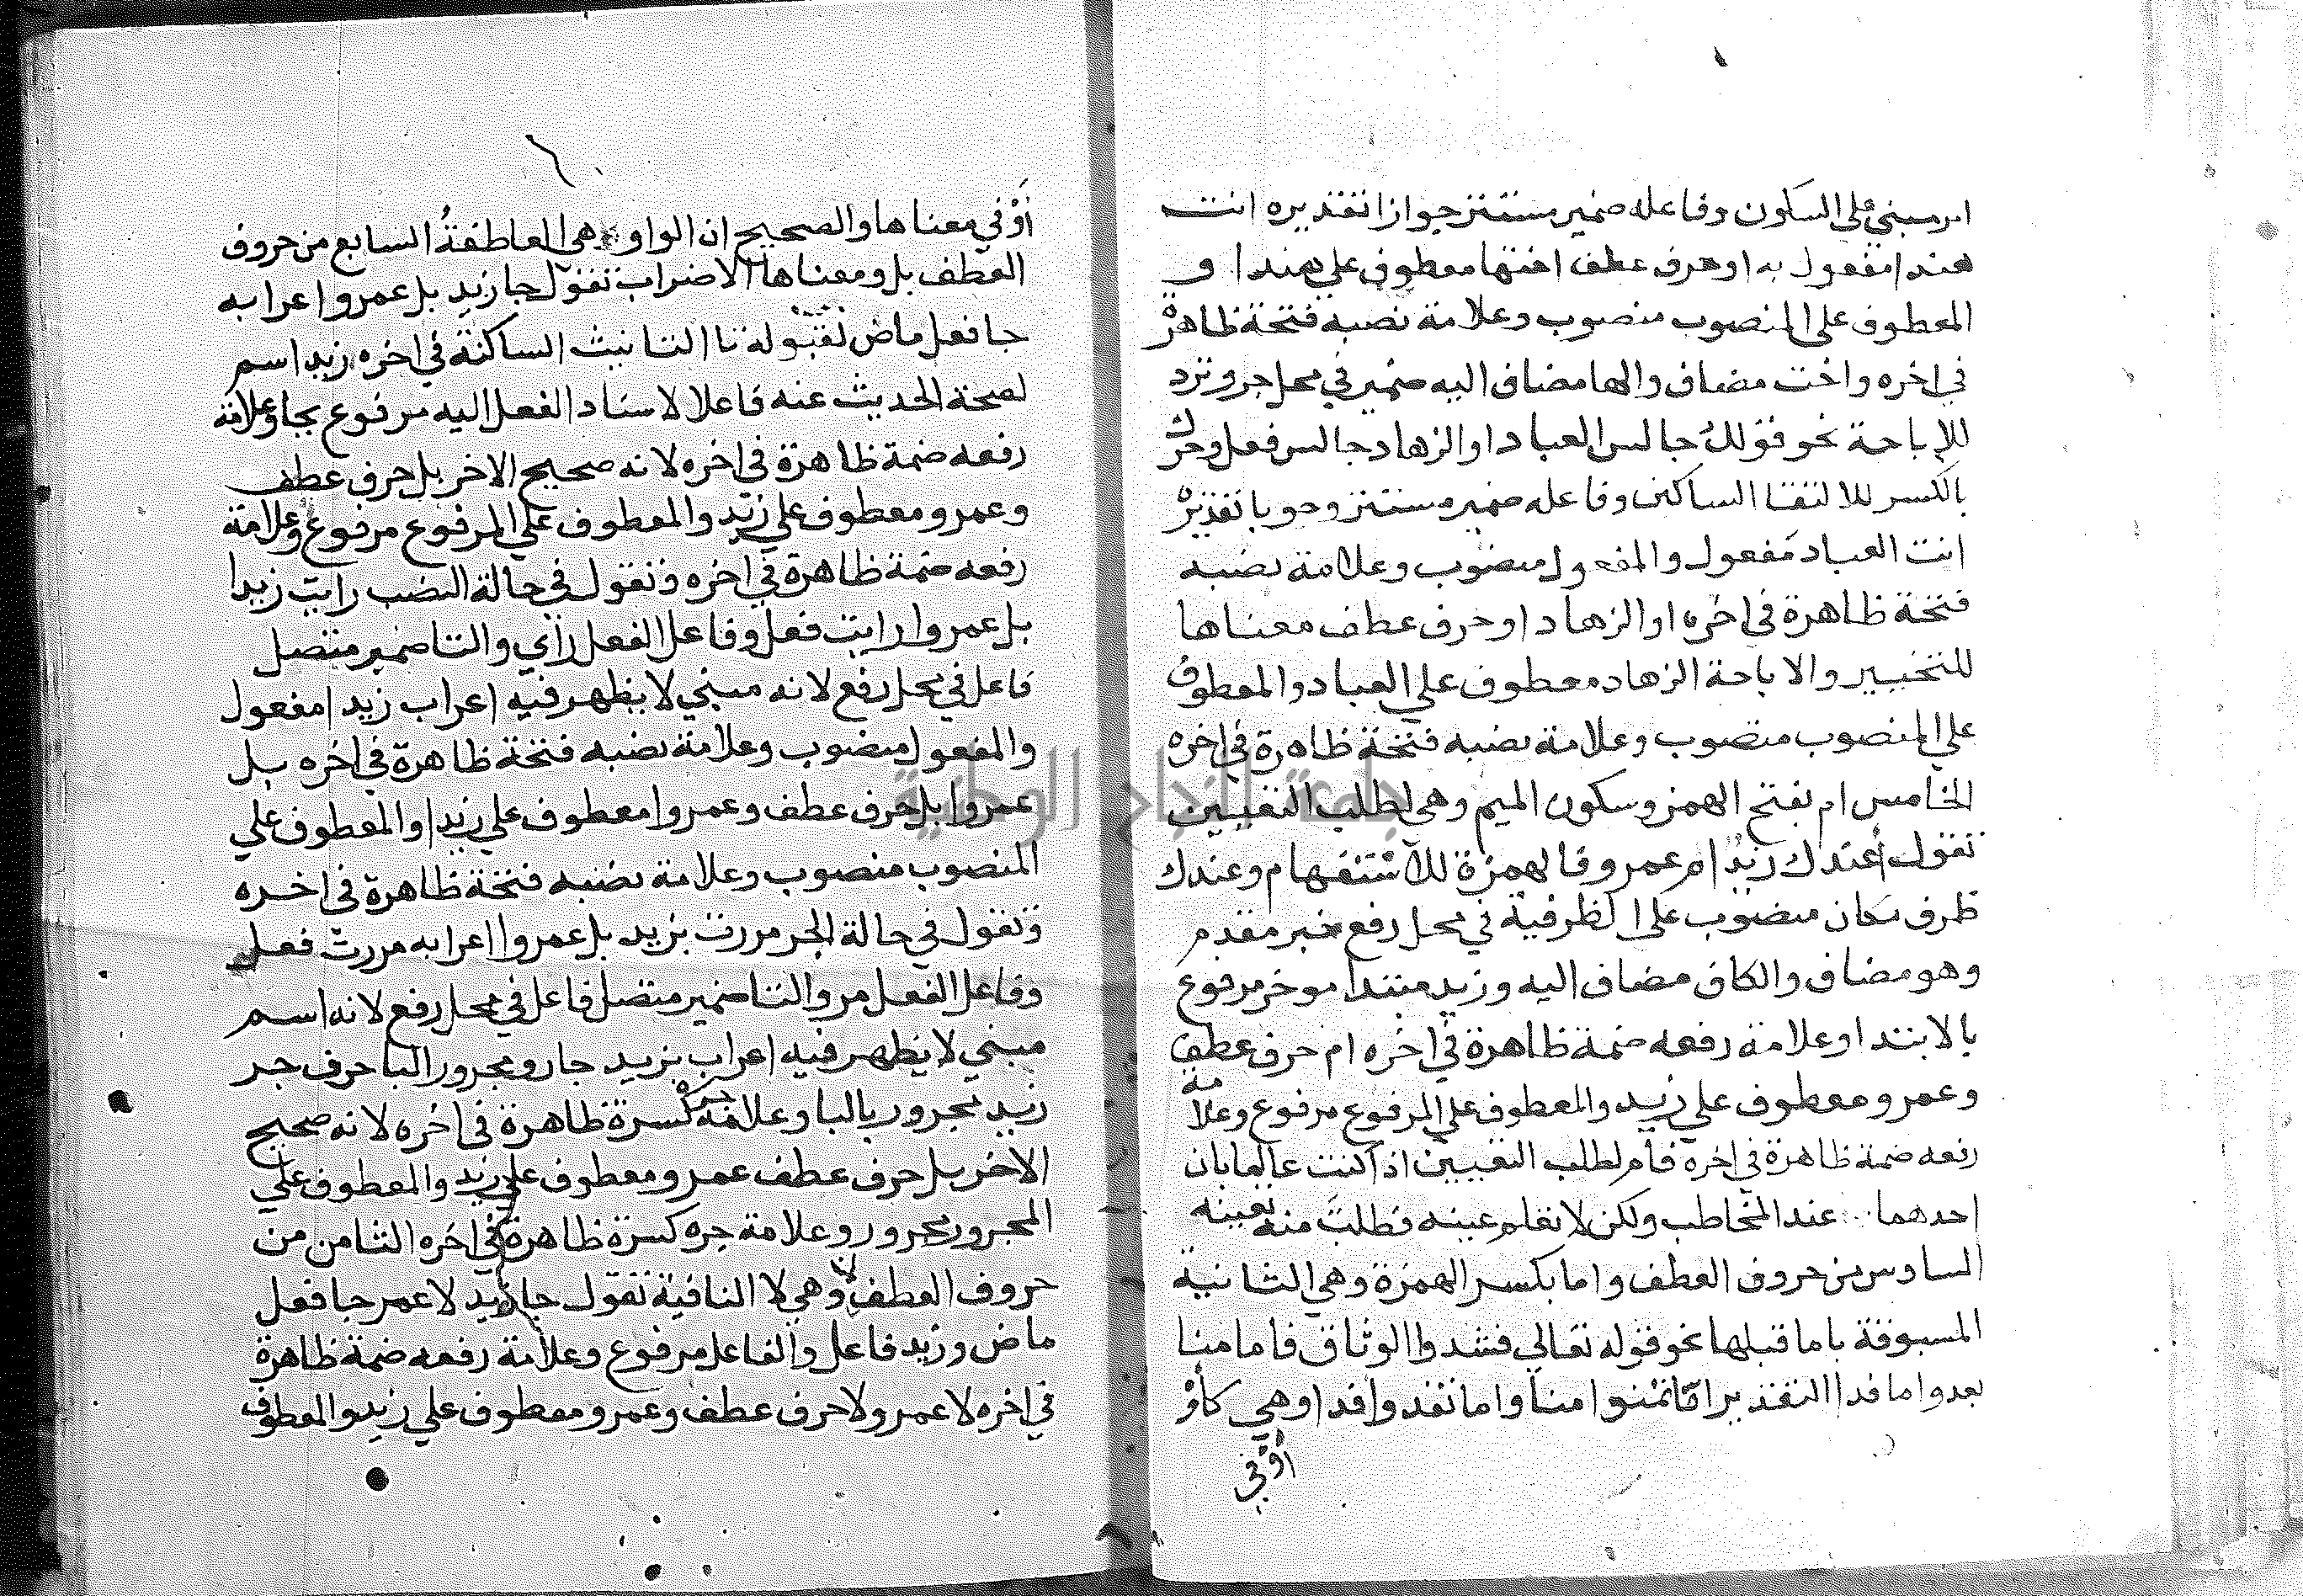 امر مبني على السكون وفاعله ضمير مستتر جوازا تقديره انت
هندا مفعول به او حرف عطف اختها معطوف على هندا و
المعطوف على المنصوب منصوب وعلامة نصبه فتحة ظاهرة
في اخره واخت مضاف والها مضاف اليه ضمير في محل جر وترد
للاباحة نحو قولك جالس العباد او الزهاد جالس فعل وحرك
بالكسر للالتقا الساكنين وفاعله ضمير مستتر وجوبا تقديره
انت العباد مفعول والمفعول منصوب وعلامة نصبه
فتحة ظاهرة في اخره او الزهاد او حرف عطف معناها
للتخيير والاباحة الزهاد معطوف على العباد والمعطوف
على المنصوب منصوب وعلامة نصبه فتحة ظاهرة في اخره
الخامس ام بفتح الهمز وسكون الميم وهي لطلب التعيين
تقول أعندك زيد ام عمرو فالهمزة للاستفهام وعندك
ظرف مكان منصوب على الظرفية في محل رفع خبر مقدم
وهو مضاف والكاف مضاف اليه وزيد مبتدا موخر مرفوع
بالابتدا وعلامة رفعه ضمة ظاهرة في اخره ام حرف عطف
وعمرو معطوف على زيد والمعطوف على المرفوع مرفوع وعلامة
رفعه ضمة ظاهرة في اخره فأم لطلب التعيين اذا كنت عالما بان
احدهما عند المخاطب ولكن لا تعلم عينه فطلبت منه تعيينه
السادس من حروف العطف واما بكسر الهمزة وهي الثانية
المسبوقة باما قبلها نحو قوله تعالى فشدوا الوثاق فاما منا
بعد واما فدا التقدير اما تمنوا منا واما تفدوا فدا وهي كأو
أو في
أو في معناها والصحيح ان الواو هي العاطفة السابع من حروف
العطف بل ومعناها الاضراب تقول جا زيد بل عمرو اعرابه
جا فعل ماض لقبوله تا التانيث الساكنة في اخره زيد اسم
لصحة الحديث عنه فاعلا لاسناد الفعل اليه مرفوع بجا وعلامة
رفعه ضمة ظاهرة في اخره لانه صحيح الاخر بل حرف عطف
وعمرو معطوف على زيد والمعطوف على المرفوع مرفوع وعلامة
رفعه ضمة ظاهرة في اخره وتقول في حالة النصب رايت زيدا
بل عمروا رايت فعل وفاعل الفعل رأي والتا ضمير متصل
فاعل في محل رفع لانه مبني لا يظهر فيه اعراب زيدا مفعول
والمفعول منصوب وعلامة نصبه فتحة ظاهرة في اخره بل
عمروا بل حرف عطف وعمروا معطوف على زيدا والمعطوف على
المنصوب منصوب وعلامة نصبه فتحة ظاهرة في اخره
وتقول في حالة الجر مررت بزيد بل عمروا اعرابه مررت فعل
وفاعل الفعل مر والتا ضمير متصل فاعل في محل رفع لانه اسم
مبني لا يظهر فيه اعراب بزيد جار ومجرور البا حرف جر
زيد مجرور بالبا وعلامة جره كسرة ظاهرة في اخره لانه صحيح
الاخر بل حرف عطف عمرو معطوف على زيد والمعطوف على
المجرور مجرور وعلامة جره كسرة ظاهرة في اخره الثامن من
حروف العطف لا وهي لا النافية تقول جا زيد لا عمر جا فعل
ماض وزيد فاعل والفاعل مرفوع وعلامة رفعه ضمة ظاهرة
في اخره لا عمر ولا حرف عطف وعمرو معطوف على زيد والمعطوف
جامعة النجاح الوطنية